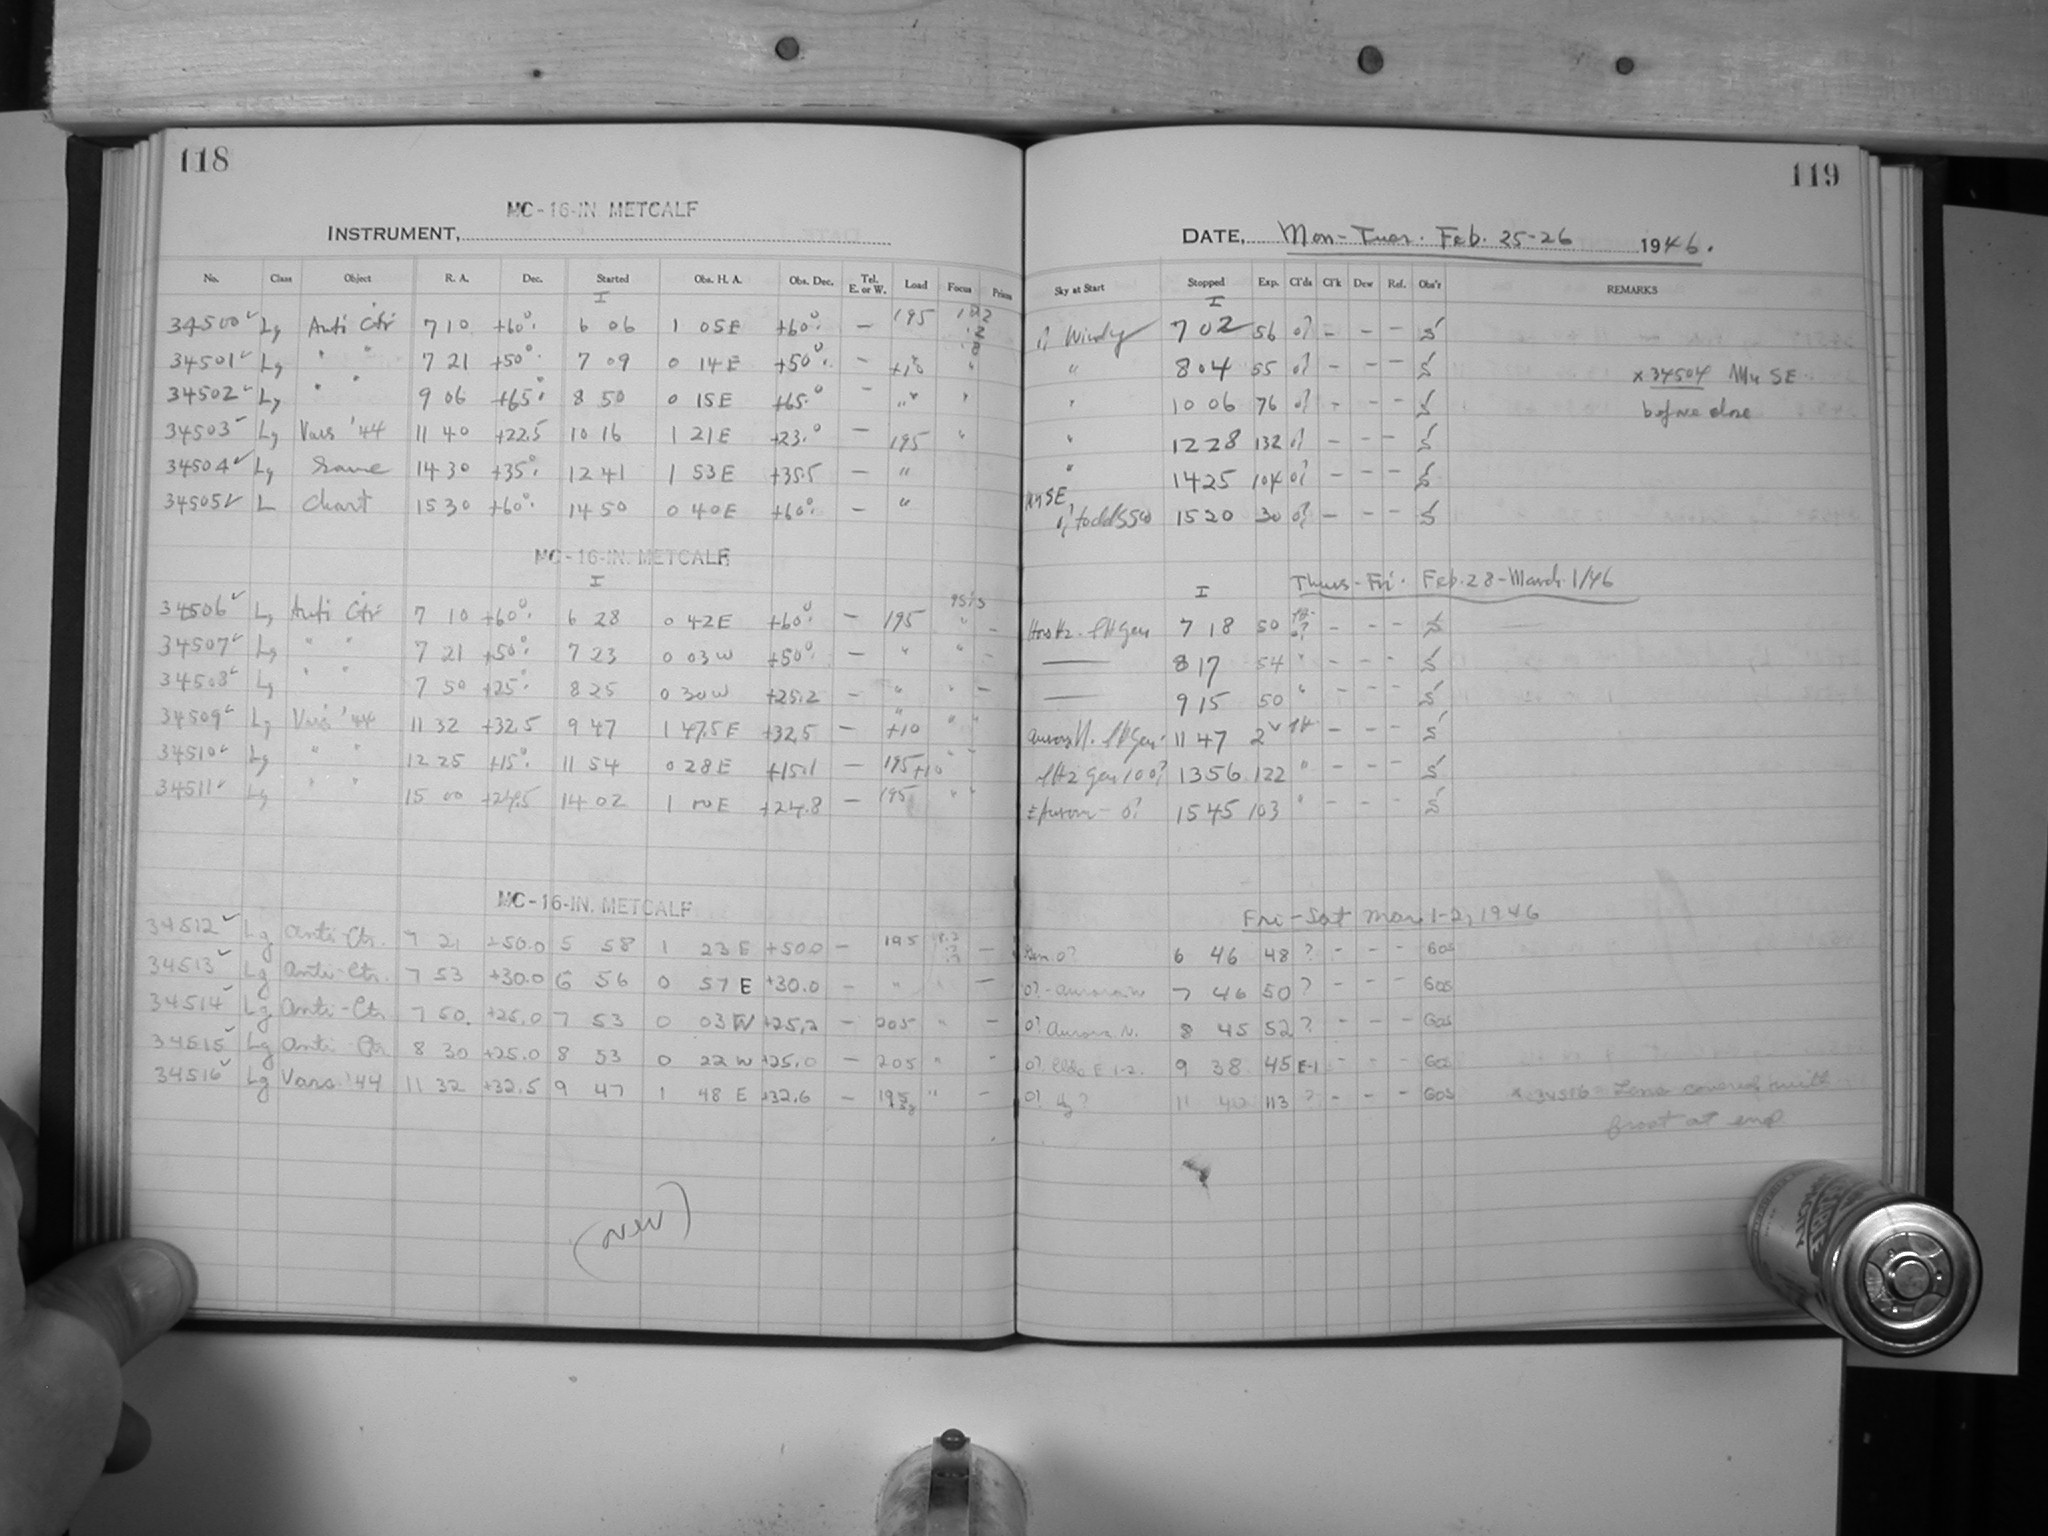 118
MC-16-IN METCALF
INSTRUMENT,
No. Class Object R. A. Dec. Started Obs. H. A. Obs. Dec. Tel. E. or W. Load Focus Prism
I
34500 Lg Anti Ctr 7 10 +60° 6 06 1 05E +60° — 195
34501 Lg " " 7 21 +50° 7 09 0 14E +50° — +10 "
34502 Lg " " 9 06 +65° 8 50 0 15E +65° — " "
34503 Lg Vars '44 11 40 +22.5 10 16 1 21E +23.0 — 195 "
34504 Lg Same 14 30 +35° 12 41 1 53E +35.5 — "
34505 L Chart 15 30 +60° 14 50 0 40E +60° — "
MC-16-IN. METCALF
I
34506 Lg Anti Ctr 7 10 +60° 6 28 0 42E +60° — 195 " —
34507 Lg " " 7 21 +50° 7 23 0 03W +50° — " " —
34508 Lg " " 7 50 +25° 8 25 0 30W +25.2 — " " —
34509 Lg Vars '44 11 32 +32.5 9 47 1 47.5E +32.5 — +10 " "
34510 Lg " " 12 25 +15° 11 54 0 28E +15.1 — 195+10 " "
34511 Lg " " 15 00 +24.5 14 02 1 E +24.8 — 195 " "
MC-16-IN. METCALF
34512 Lg Anti-Ctr. 7 21 +50.0 5 58 1 23 E +50.0 — 195 —
34513 Lg Anti-Ctr. 7 53 +30.0 6 56 0 57 E +30.0 — " " —
34514 Lg Anti-Ctr 7 50. +25.0 7 53 0 03 W +25.2 — 205 " —
34515 Lg Anti Ctr 8 30 +25.0 8 53 0 22 W +25.0 — 205 " "
34516 Lg Vars '44 11 32 +32.5 9 47 1 48 E +32.6 — 195 " —
(over)
119
DATE, Mon-Tues. Feb. 25-26 1946.
Sky at Start Stopped Exp. Cl'ds Cl'k Dew Ref. Obs'r REMARKS
I
Windy 7 02 56 0? — — —
" 8 04 55 0? — — — x 34504 SE
" 10 06 76 0? — — — before close
" 12 28 132 0? — — —
" 14 25 104 0? — — —
SE
15 20 30 0? — — —
Thurs-Fri. Feb. 28-March 1/46
I
7 18 50 — — —
—— 8 17 54 " — — —
—— 9 15 50 " — — —
Aurora N. 11 47 — — —
13 56 122 " — — —
0? 15 45 103 " — — —
Fri-Sat Mar 1-2, 1946
0? 6 46 48 ? — — — Gos
0? - Aurora N 7 46 50 ? — — — Gos
0? Aurora N. 8 45 52 ? — — — Gos
0? Clds E 1-2. 9 38 45 E-1 — — — Gos
0? 11 40 113 ? — — — Gos x 34516 = Lens covered with
frost at end